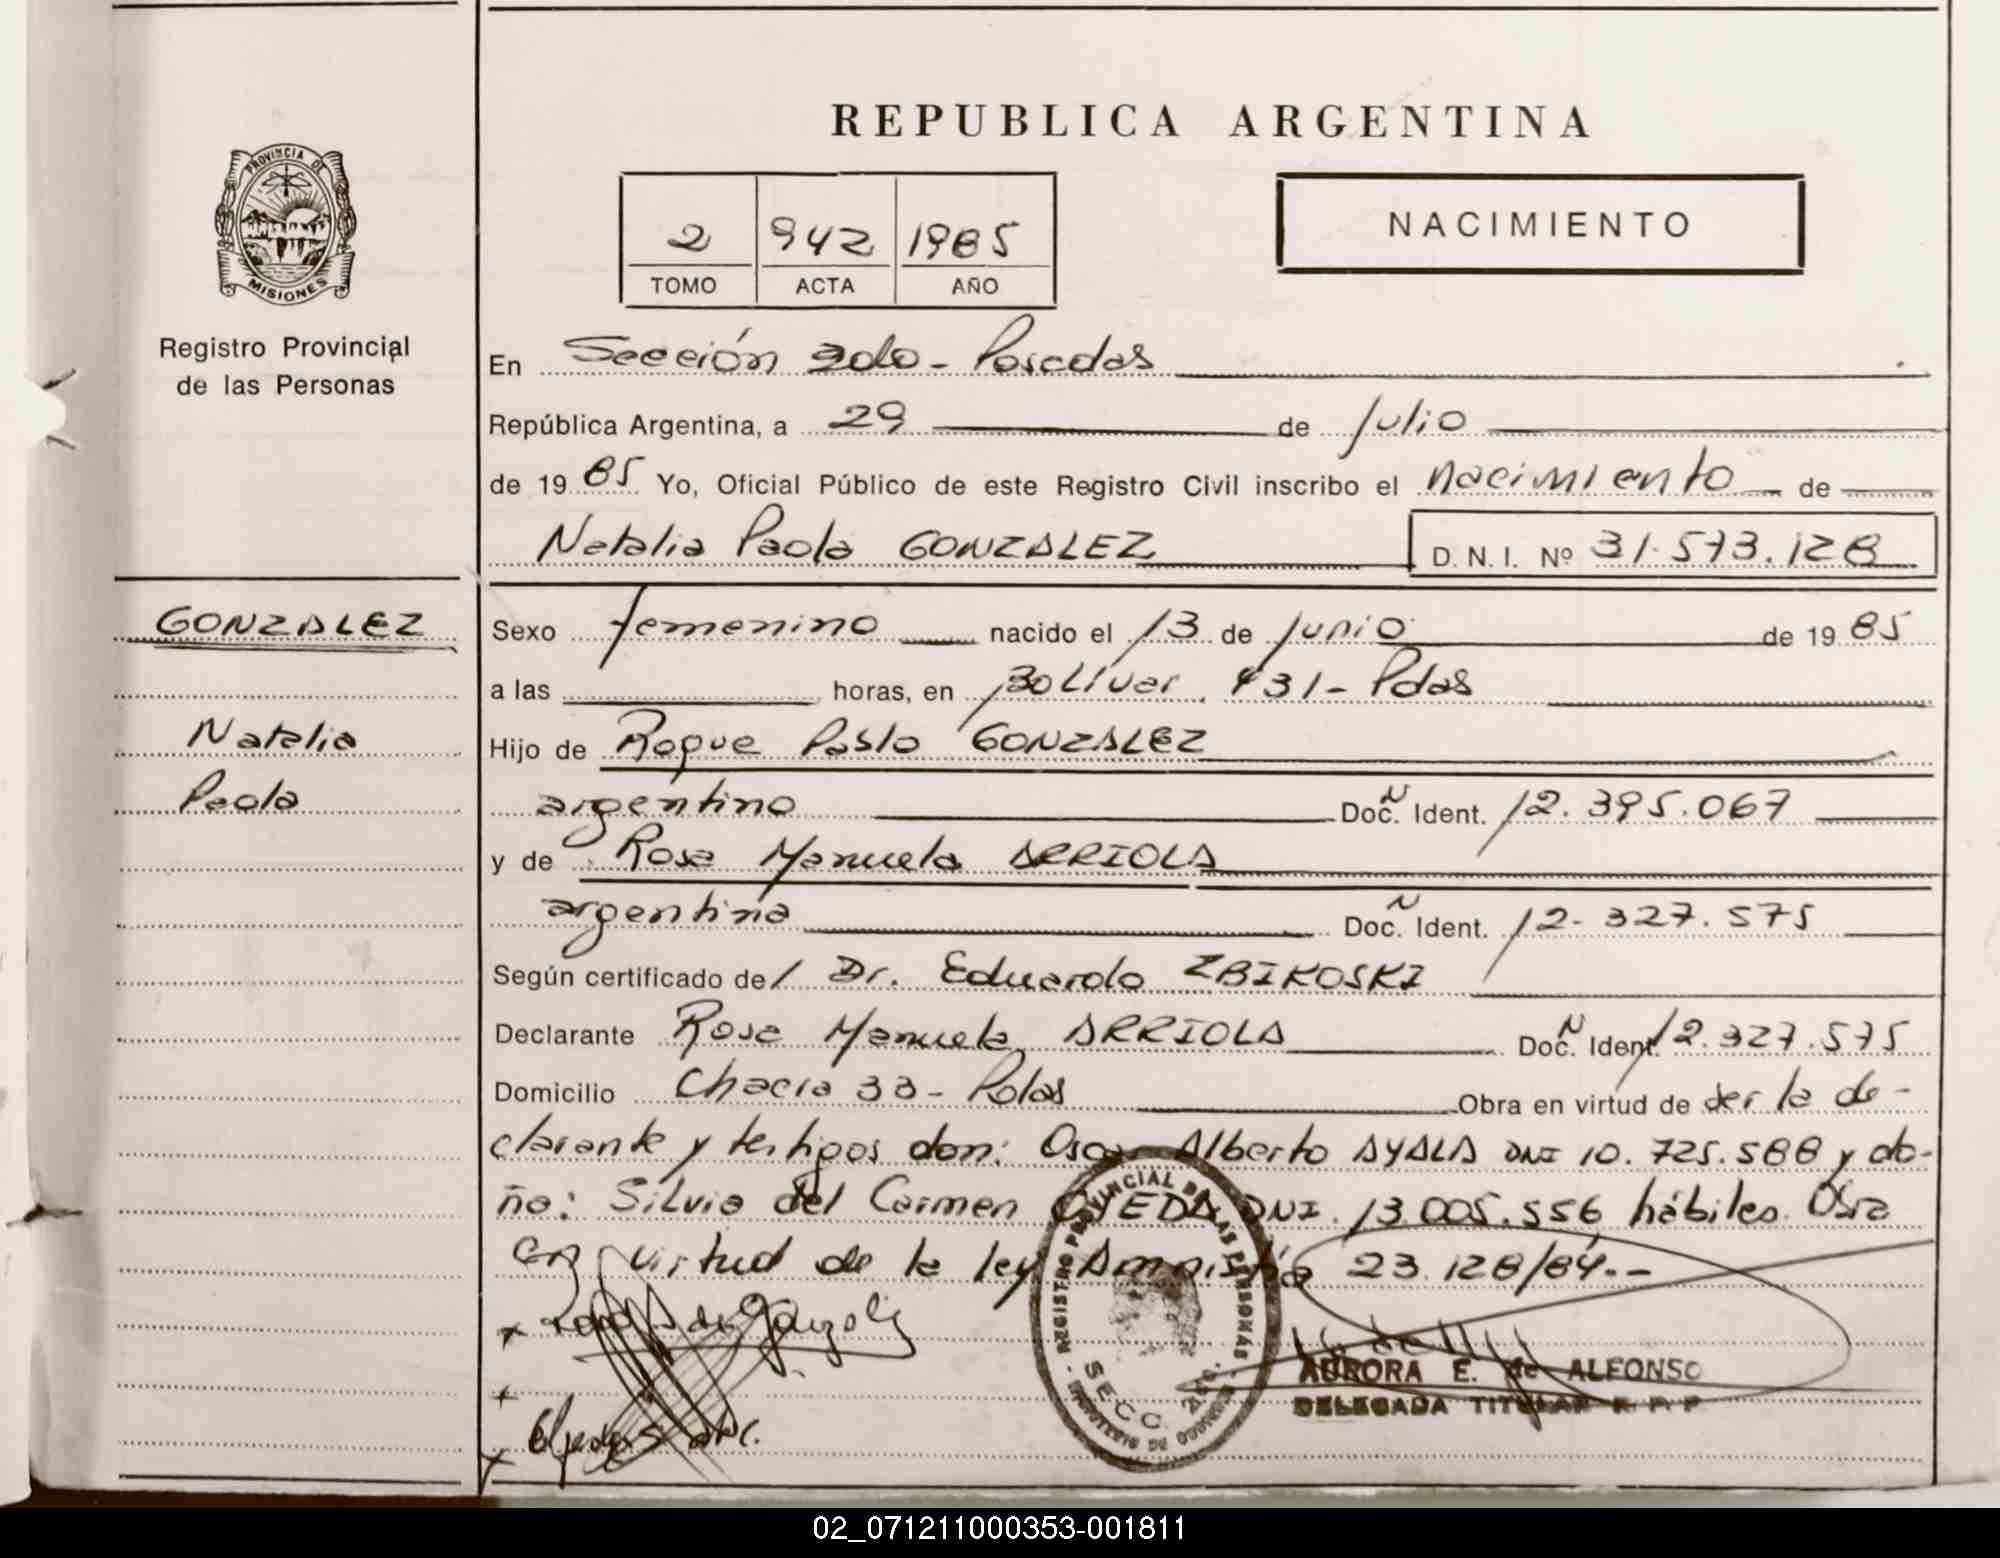 REPUBLICA ARGENTINA
PROVINCIA DE
MISIONES
Registro Provincial
de las Personas
2 942 1985
TOMO ACTA AÑO
NACIMIENTO
En Sección 2da - Posadas
República Argentina, a 29 de Julio
de 1985 Yo, Oficial Público de este Registro Civil inscribo el nacimiento de
Natalia Paola GONZALEZ D. N. I. Nº 31.573.128
GONZALEZ
Natalia
Paola
Sexo femenino nacido el 13 de Junio de 1985
a las horas, en Bolívar 431 - Pdas
Hijo de Roque Pablo GONZALEZ
argentino Doc. N Ident. 12.395.067
y de Rosa Manuela ARRIOLA
argentina Doc. N Ident. 12.327.575
Según certificado del Dr. Eduardo ZBIKOSKI
Declarante Rosa Manuela ARRIOLA Doc. N Ident. 12.327.575
Domicilio Chacra 33 - Pdas Obra en virtud de ser la de-
clarante y testigos don: Oscar Alberto AYALA DNI 10.725.588 y do-
ña: Silvia del Carmen OJEDA DNI. 13.005.556 hábiles. Obra
en virtud de la ley Amnistía 23.128/84.-
REGISTRO PROVINCIAL DE LAS PERSONAS
SECC. 2da.
AURORA E. de ALFONSO
DELEGADA TITULAR R. P. P.
02_071211000353-001811